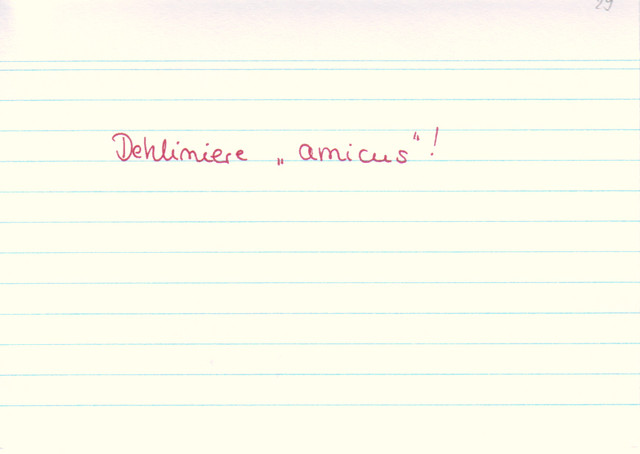 29
Dekliniere „amicus"!